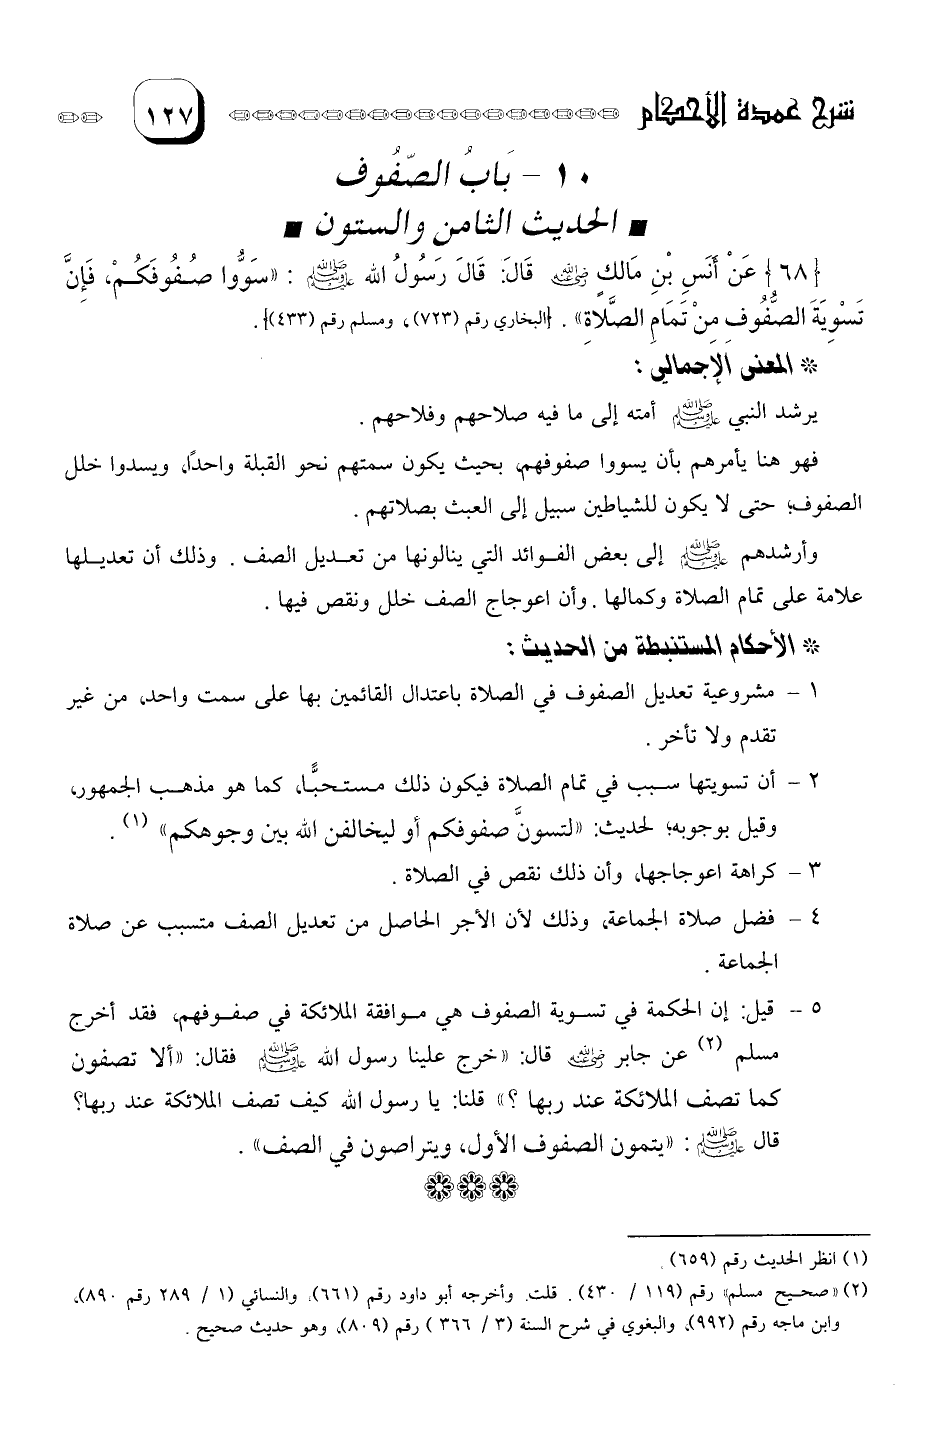 شرح عمدة الأحكام ١٢٧
١٠ - بَابُ الصّفُوف
■ الحديث الثامن والستون ■
{٦٨} عَنْ أَنَسِ بْنِ مَالكٍ رضي الله عنه قَالَ: قَالَ رَسُولُ الله ﷺ : «سَوُّوا صُفُوفَكُمْ، فَإِنَّ
تَسْوِيَةَ الصُّفُوفِ مِنْ تَمَامِ الصَّلَاةِ» . {البخاري رقم (٧٢٣)، ومسلم رقم (٤٣٣)}.
* المعنى الإجمالي :
يرشد النبي ﷺ أمته إلى ما فيه صلاحهم وفلاحهم .
فهو هنا يأمرهم بأن يسووا صفوفهم، بحيث يكون سمتهم نحو القبلة واحدًا، ويسدوا خلل
الصفوف؛ حتى لا يكون للشياطين سبيل إلى العبث بصلاتهم .
وأرشدهم ﷺ إلى بعض الفوائد التي ينالونها من تعديل الصف . وذلك أن تعديلها
علامة على تمام الصلاة وكمالها . وأن اعوجاج الصف خلل ونقص فيها .
* الأحكام المستنبطة من الحديث :
١ - مشروعية تعديل الصفوف في الصلاة باعتدال القائمين بها على سمت واحد، من غير
تقدم ولا تأخر .
٢ - أن تسويتها سبب في تمام الصلاة فيكون ذلك مستحبًّا، كما هو مذهب الجمهور،
وقيل بوجوبه؛ لحديث: «لتسونَّ صفوفكم أو ليخالفن الله بين وجوهكم» (١) .
٣ - كراهة اعوجاجها، وأن ذلك نقص في الصلاة .
٤ - فضل صلاة الجماعة، وذلك لأن الأجر الحاصل من تعديل الصف متسبب عن صلاة
الجماعة .
٥ - قيل: إن الحكمة في تسوية الصفوف هي موافقة الملائكة في صفوفهم، فقد أخرج
مسلم (٢) عن جابر رضي الله عنه قال: «خرج علينا رسول الله ﷺ فقال: «ألا تصفون
كما تصف الملائكة عند ربها ؟» قلنا: يا رسول الله كيف تصف الملائكة عند ربها؟
قال ﷺ : «يتمون الصفوف الأول، ويتراصون في الصف» .
(١) انظر الحديث رقم (٦٥٩) .
(٢) «صحيح مسلم» رقم (١١٩ / ٤٣٠) . قلت. وأخرجه أبو داود رقم (٦٦١)، والنسائي (١ / ٢٨٩ رقم ٨٩٠)،
وابن ماجه رقم (٩٩٢)، والبغوي في شرح السنة (٣ / ٣٦٦ ) رقم (٨٠٩)، وهو حديث صحيح .